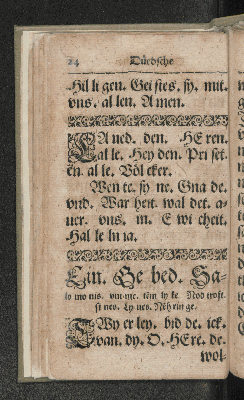 24 Düedsche
Hil li gen. Gei stes. sy. mit.
vns. al len. A men.
LA ued. den. HE ren.
Lal le. Hey den. Pri set.
en. al le. Völ cker.
Wen te. sy ne. Gna de.
vnd. War heit. wal det. a-
uer. vns. in. E wi cheit.
Hal le lu ia.
Ein. Ge bed. Sa-
lo mo nis. vmme. tim ly ke. Nod troft.
sy nes. Ly ues. Neh rin ge.
TWy er ley. bid de. ick.
van. dy. O. HEre. de.
wol-